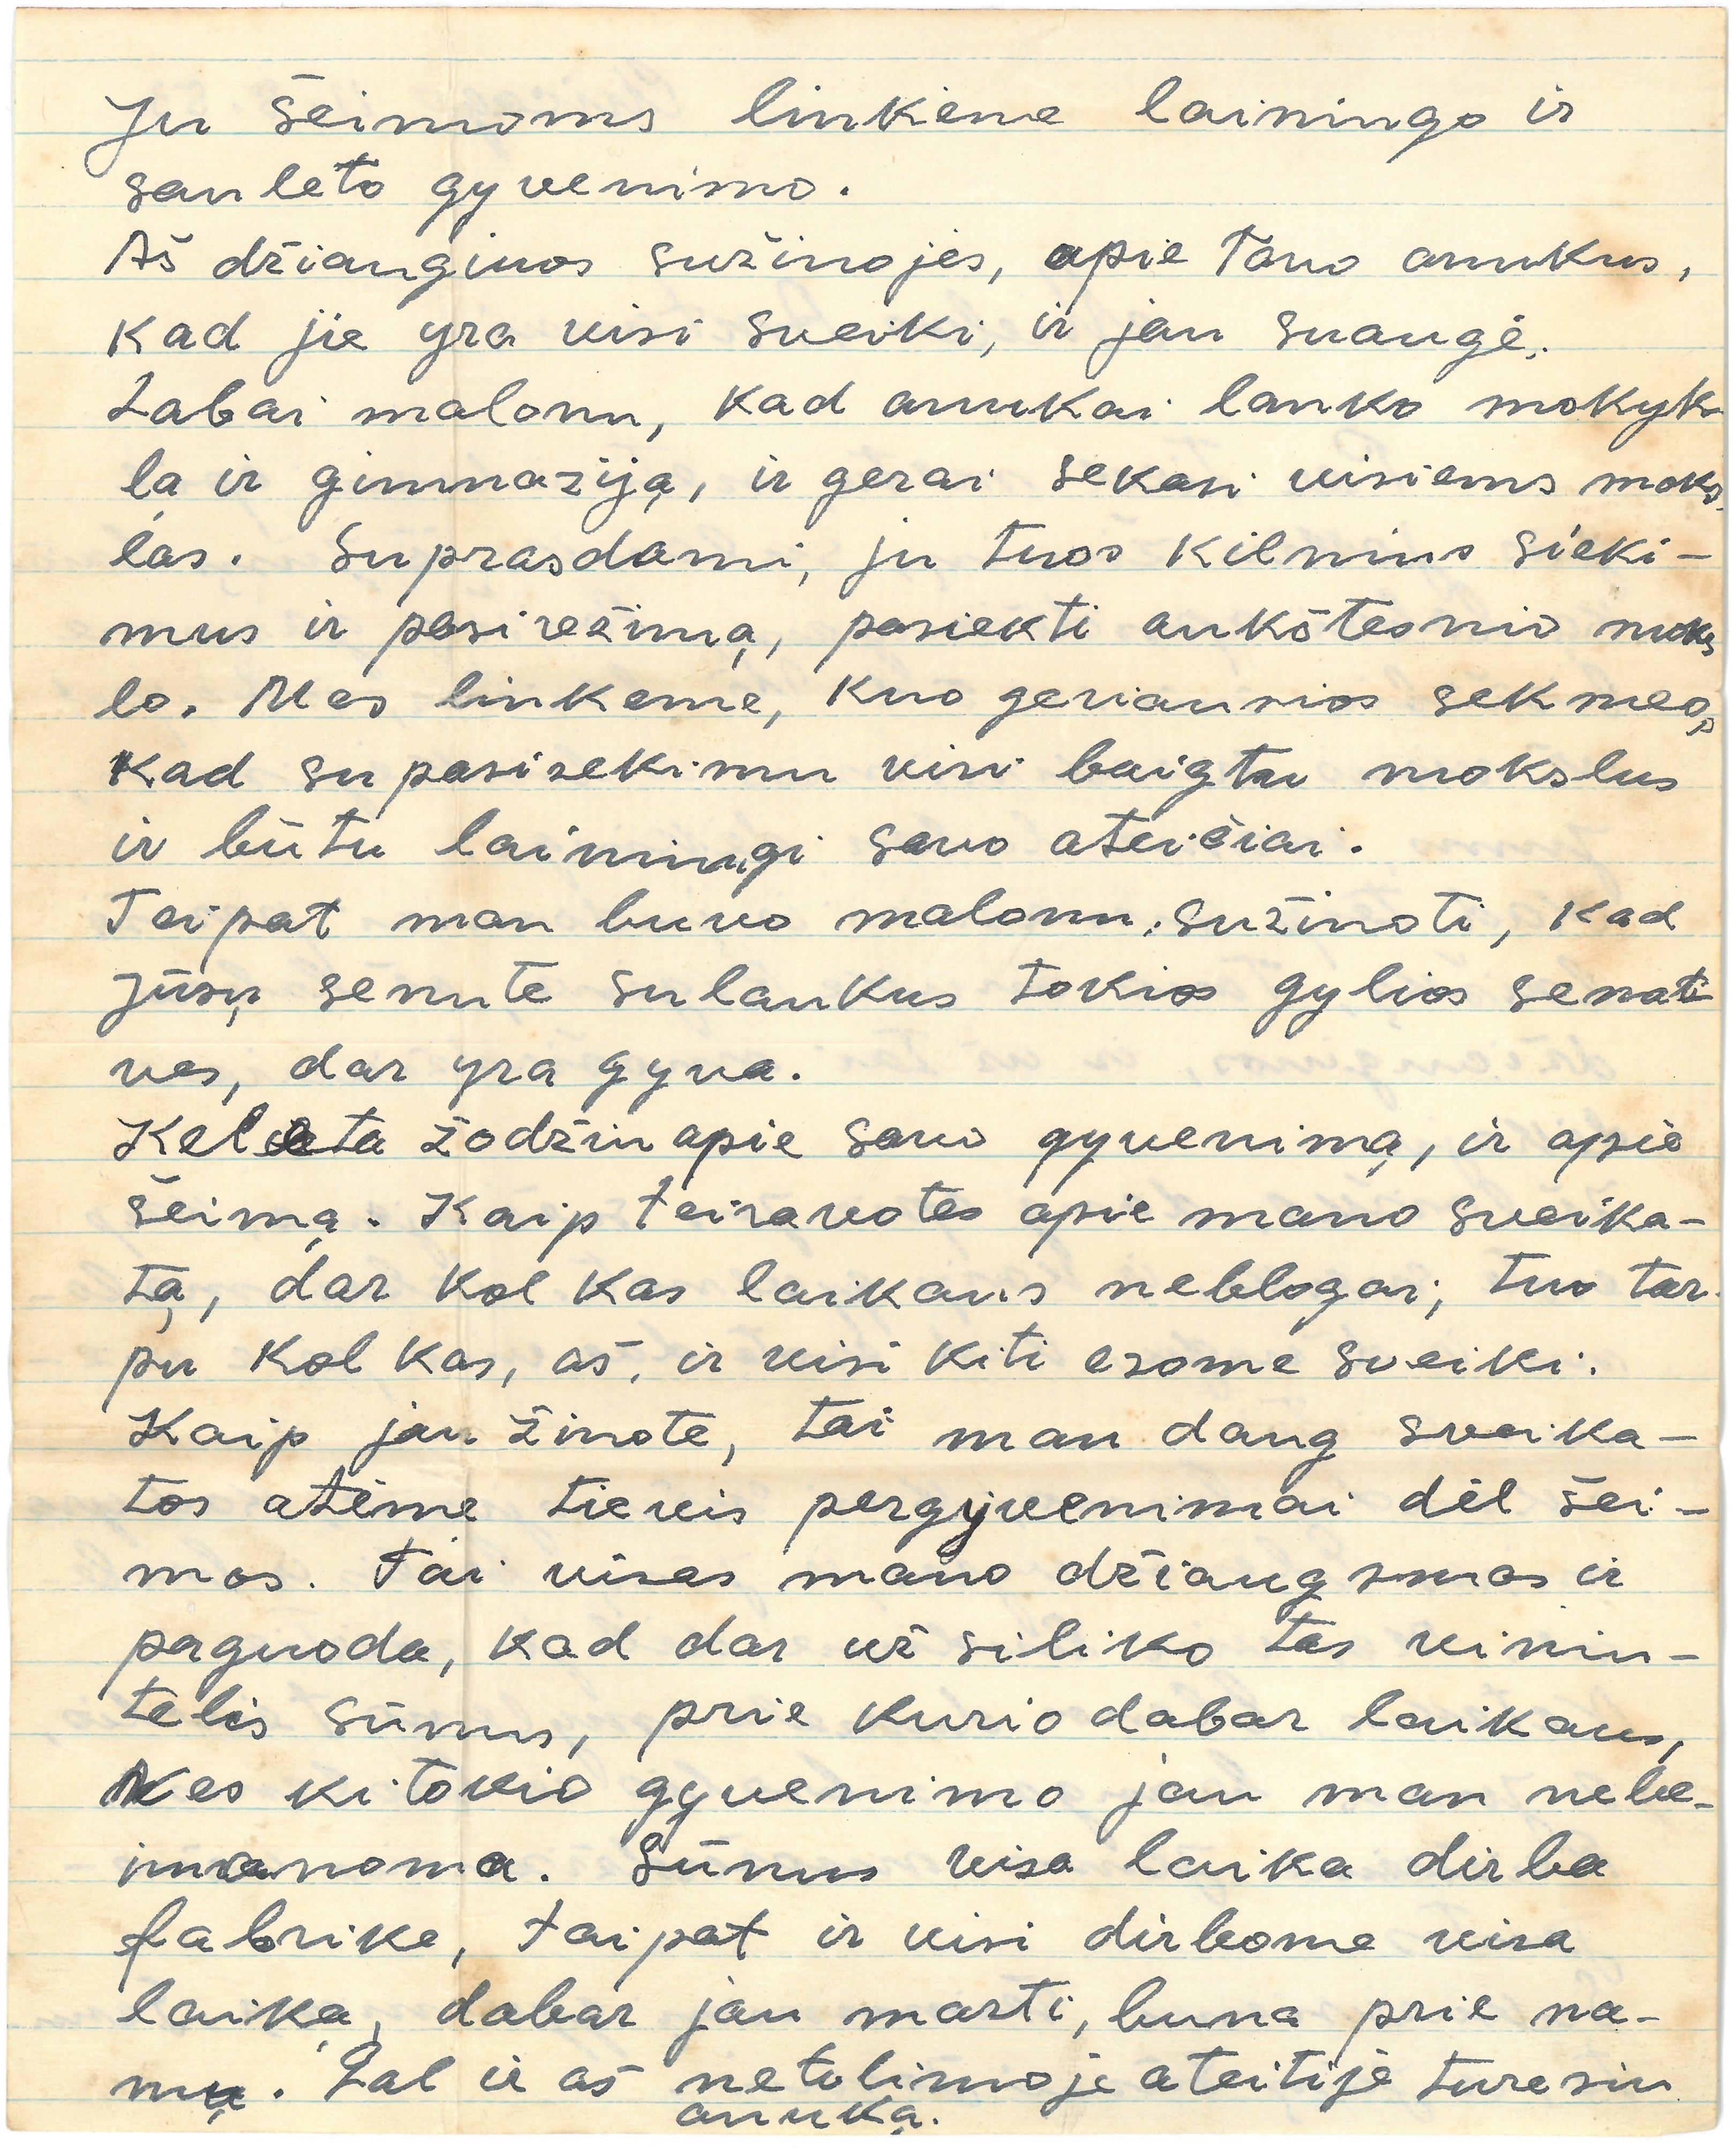 Ju šeimoms linkėme laimingo ir
sauleto gyvenimo.
Aš džiauginos sužinojęs, apie Tavo anukus,
kad jie yra visi sveiki, ir jau suaugė.
Labai malonu, kad anukai lanko mokyk-
lą ir gimnaziją, ir gerai sekasi visiems moks-
las. Suprasdami, ju tuos kilnius sieki-
mus ir pasirežimą, pasiekti aukštesnio moks
lo. Mes linkeme, kuo geriausios sekmes,
kad su pasisekimu visi baigtu mokslus
ir būtu laimingi savo ateičiai.
Teipat man buvo malonu, sužinoti, kad
Jūsų senute sulaukus tokios gylios senat-
ves, dar yra gyva.
Keleta žodžiu apie savo gyvenimą, ir apie
šeimą. Kaip teiravotes apie mano sveika-
tą, dar kol kas laikaus neblogai, tuo tar-
pu kol kas, aš, ir visi kiti esome sveiki.
Kaip jau žinote, tai man daug sveika-
tos atėme tie vis pergyvenimai dėl šei-
mos. Tai visas mano džiaugsmas ir
paguoda, kad dar už siliko tas vinin-
telis sūnus, prie kurio dabar laikaus,
Nes kitokio gyvenimo jau man nebe-
imanoma. Sūnus visa laika dirba
fabrike, taipat ir visi dirbome visa
laiką, dabar jau marti, buna prie na-
mų. Gal ir aš netolimoje ateitije turesiu
anuką.